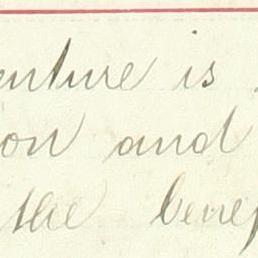 enture is
on and
the benef